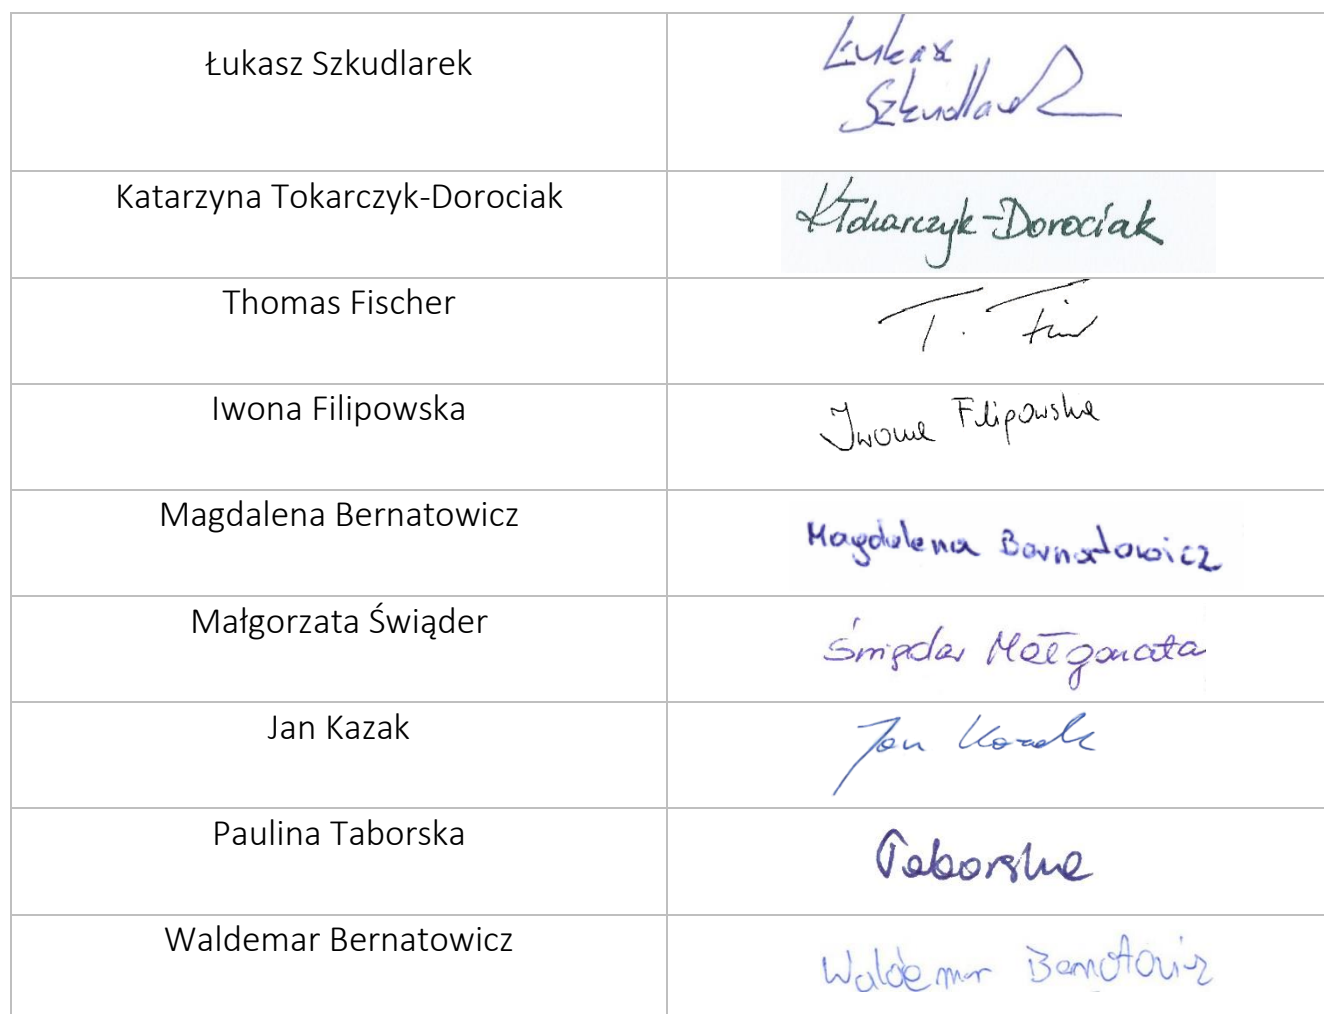 Łukasz Szkudlarek
Łukasz
Szkudlarek
Katarzyna Tokarczyk-Dorociak
KTokarczyk-Dorociak
Thomas Fischer
T. Fi
Iwona Filipowska
Iwona Filipowska
Magdalena Bernatowicz
Magdalena Bernatowicz
Małgorzata Świąder
Świąder Małgorzata
Jan Kazak
Jan Kazak
Paulina Taborska
Taborska
Waldemar Bernatowicz
Waldemar Bernatowicz